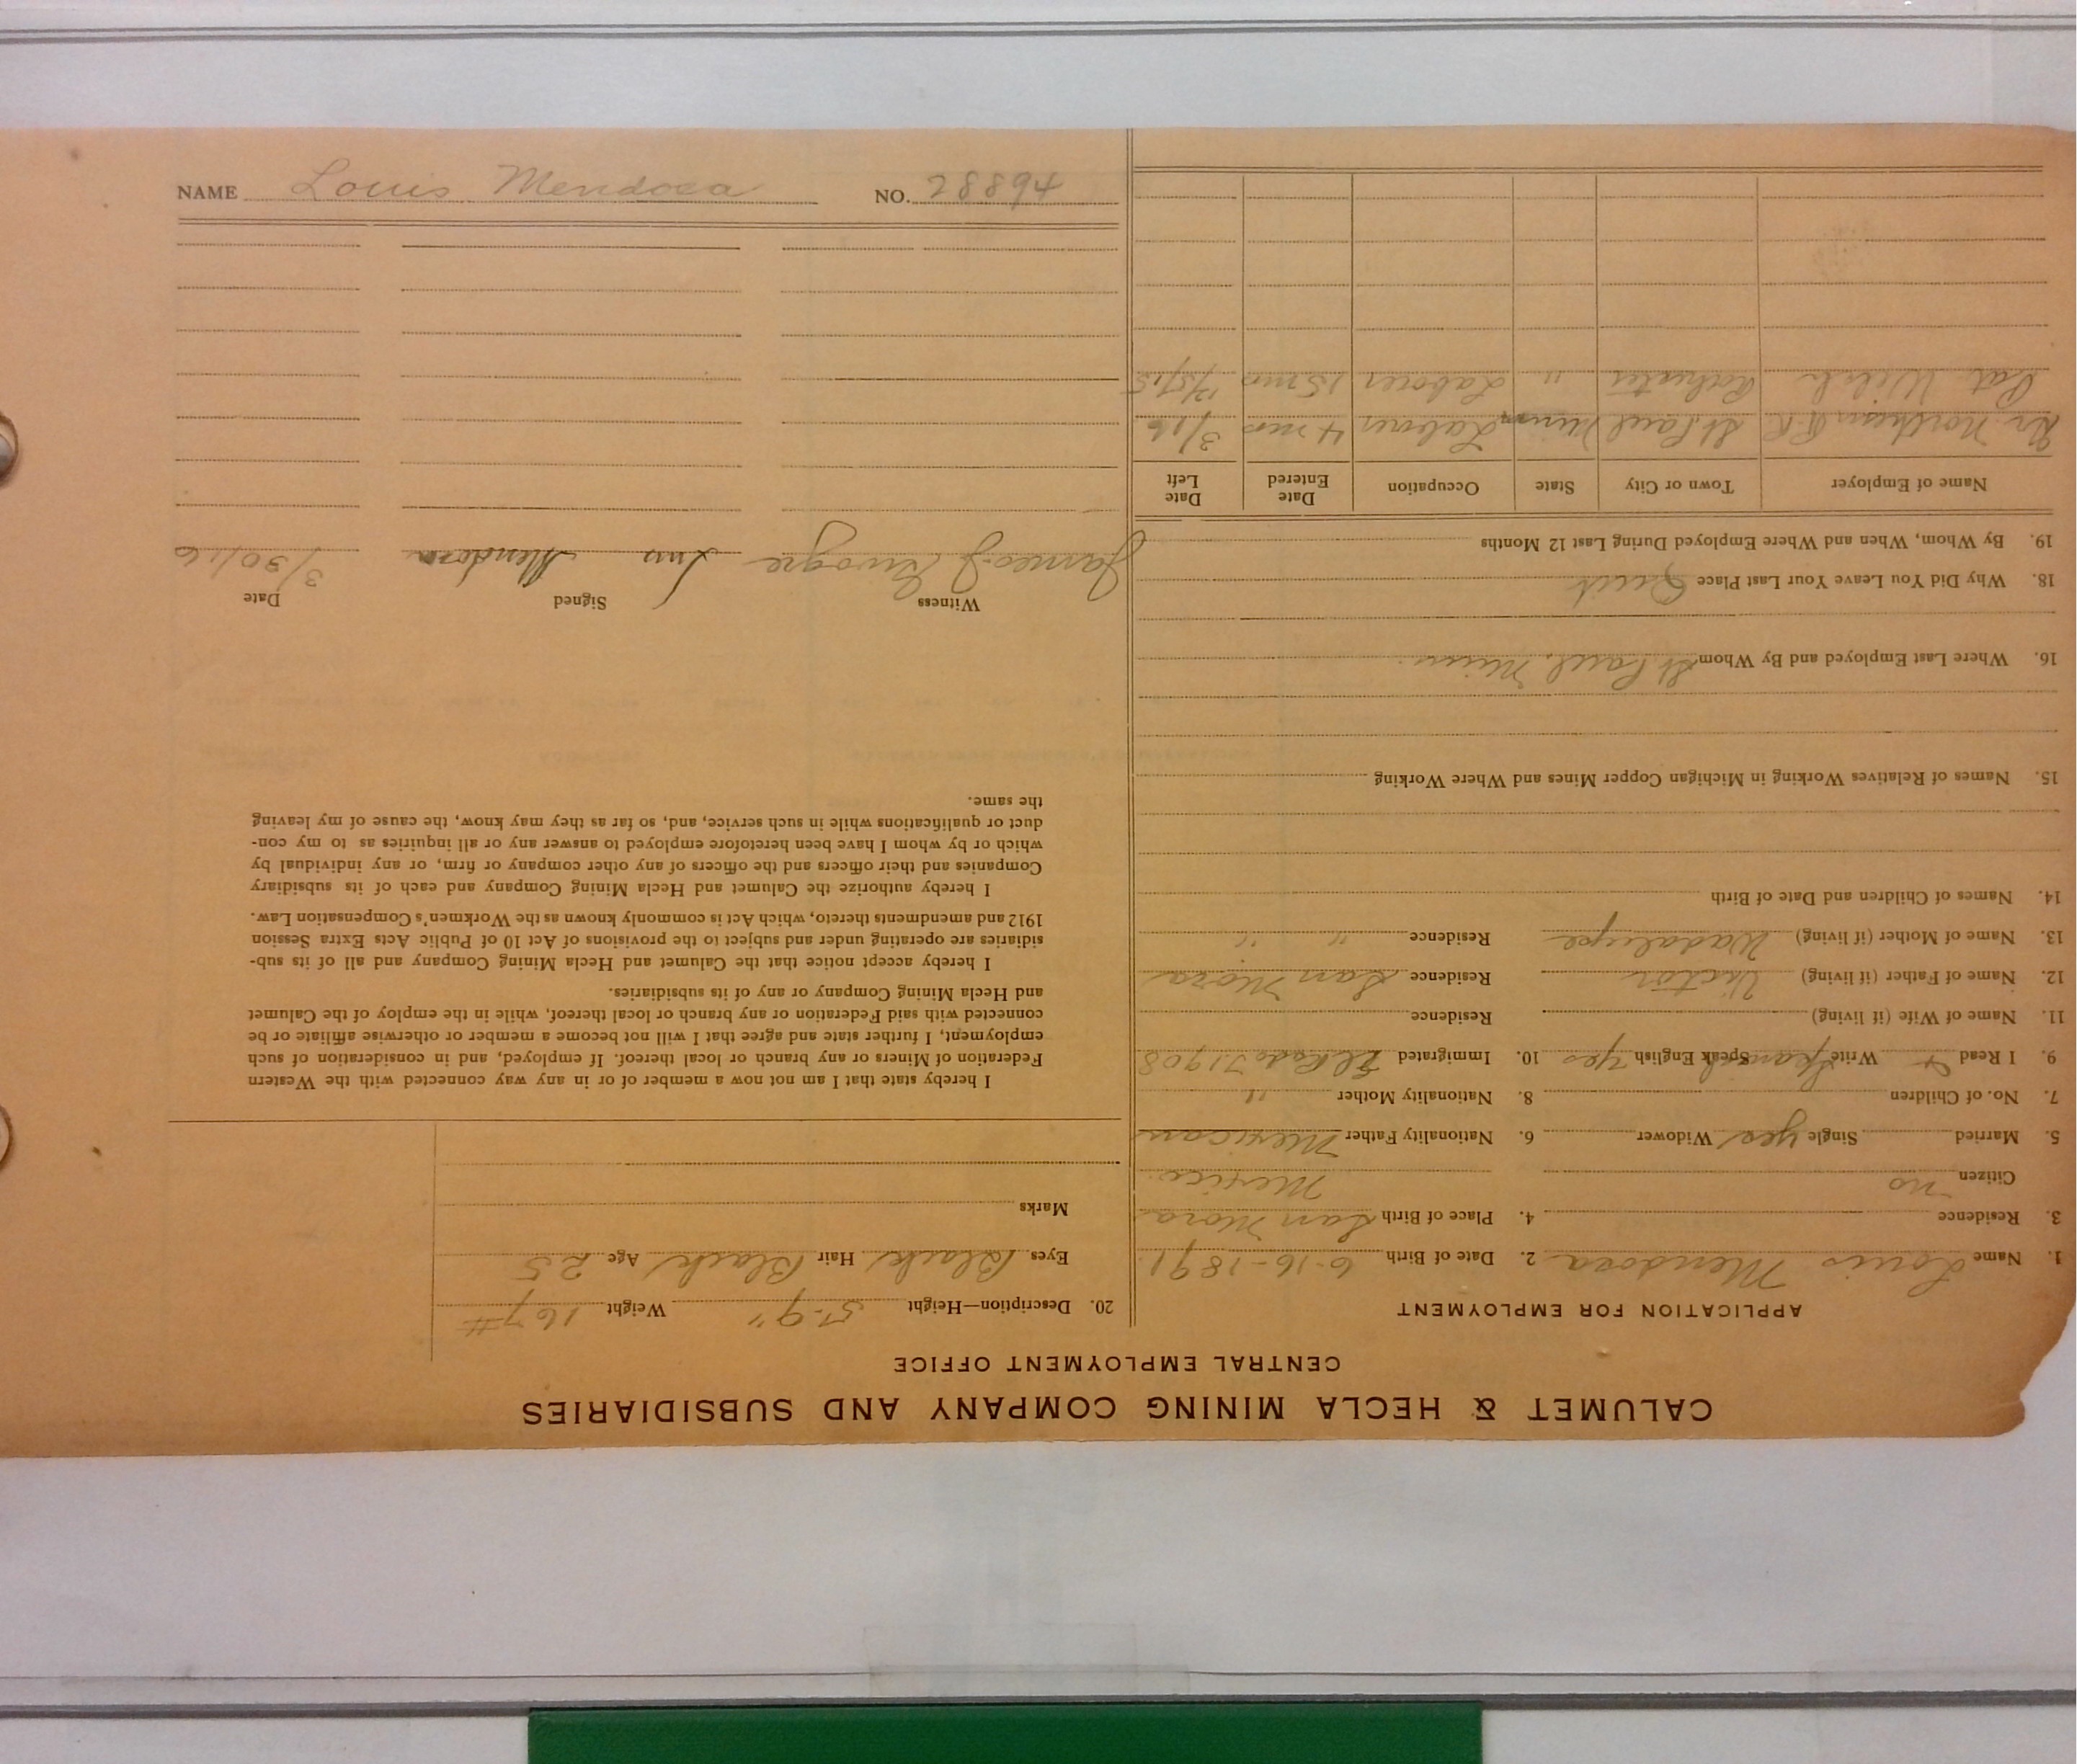 CALUMET & HECLA MINING COMPANY AND SUBSIDIARIES
CENTRAL EMPLOYMENT OFFICE
APPLICATION FOR EMPLOYMENT
1. Name Louis Mendoza 2. Date of Birth 6-16-1891
3. Residence 4. Place of Birth San Mora
Citizen no Mexico
5. Married Single yes Widower 6. Nationality Father Mexican
7. No. of Children 8. Nationality Mother "
9. I Read & Write Spanish Speak English yes 10. Immigrated El Paso 1908
11. Name of Wife (if living) Residence
12. Name of Father (if living) Victor Residence San Mora
13. Name of Mother (if living) Wadalupe Residence " "
14. Names of Children and Date of Birth
15. Names of Relatives Working in Michigan Copper Mines and Where Working
16. Where Last Employed and By Whom St Paul, Minn.
18. Why Did You Leave Your Last Place Quit
19. By Whom, When and Where Employed During Last 12 Months
Name of Employer Town or City State Occupation Date Entered Date Left
Gr Northern R.R. St. Paul Minn Laborer 4 mos 3/16
Pat Rochester " Laborer 15 mos 12/5/15
20. Description—Height 5'-9" Weight 167#
Eyes Black Hair Black Age 25
Marks
I hereby state that I am not now a member of or in any way connected with the Western
Federation of Miners or any branch or local thereof. If employed, and in consideration of such
employment, I further state and agree that I will not become a member or otherwise affiliate or be
connected with said Federation or any branch or local thereof, while in the employ of the Calumet
and Hecla Mining Company or any of its subsidiaries.
I hereby accept notice that the Calumet and Hecla Mining Company and all of its sub-
sidiaries are operating under and subject to the provisions of Act 10 of Public Acts Extra Session
1912 and amendments thereto, which Act is commonly known as the Workmen's Compensation Law.
I hereby authorize the Calumet and Hecla Mining Company and each of its subsidiary
Companies and their officers and the officers of any other company or firm, or any individual by
which or by whom I have been heretofore employed to answer any or all inquiries as to my con-
duct or qualifications while in such service, and, so far as they may know, the cause of my leaving
the same.
Witness Signed Date
James J Luis Mendoza 3/30/16
NAME Louis Mendoza NO. 28894